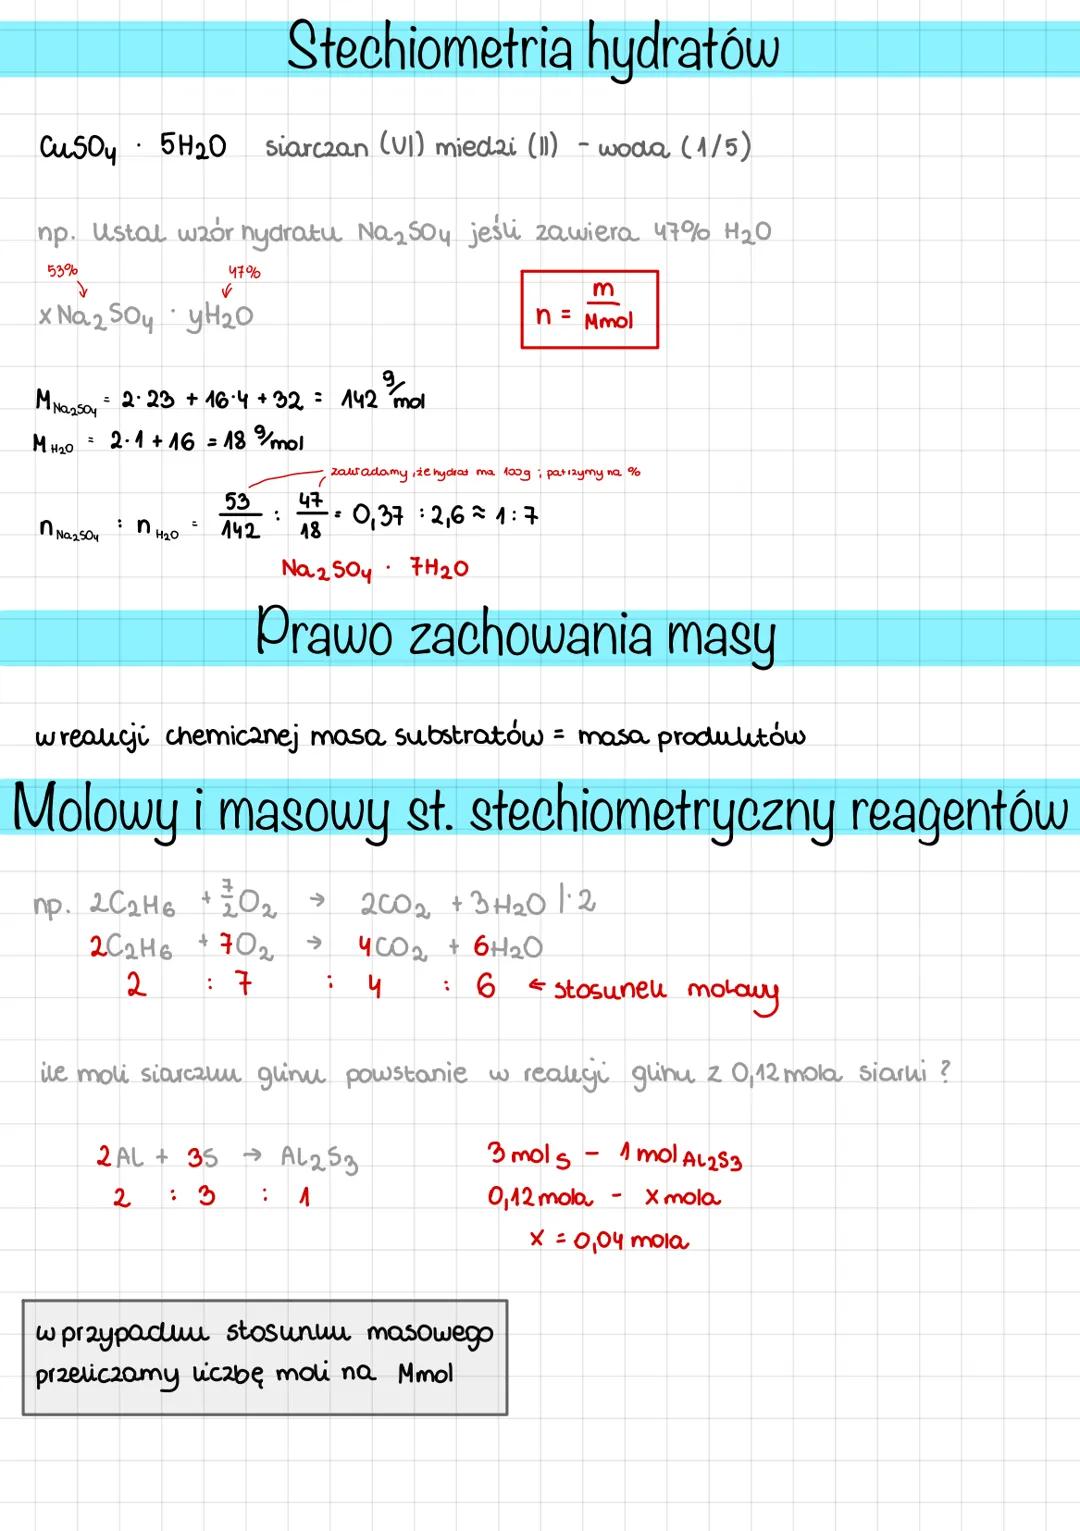 Stechiometria hydratów
CuSO4 · 5H2O siarczan (VI) miedzi (II) - woda (1/5)
np. Ustal wzór hydratu Na2SO4 jeśli zawiera 47% H2O
53% 47%
xNa2SO4 · yH2O
n = m/Mmol
MNa2SO4 = 2·23 + 16·4 + 32 = 142 g/mol
MH2O = 2·1 + 16 = 18 g/mol
zakładamy, że hydrat ma 100g i patrzymy na %
nNa2SO4 : nH2O = 53/142 : 47/18 = 0,37 : 2,6 ≈ 1:7
Na2SO4 · 7H2O
Prawo zachowania masy
w reakcji chemicznej masa substratów = masa produktów
Molowy i masowy st. stechiometryczny reagentów
np. 2C2H6 + 7/2O2 → 2CO2 + 3H2O |·2
2C2H6 + 7O2 → 4CO2 + 6H2O
2 : 7 : 4 : 6 ← stosunek molowy
ile moli siarczku glinu powstanie w reakcji glinu z 0,12 mola siarki ?
2Al + 3S → Al2S3
2 : 3 : 1
3 mol S - 1 mol Al2S3
0,12 mola - x mola
x = 0,04 mola
w przypadku stosunku masowego
przeliczamy liczbę moli na Mmol